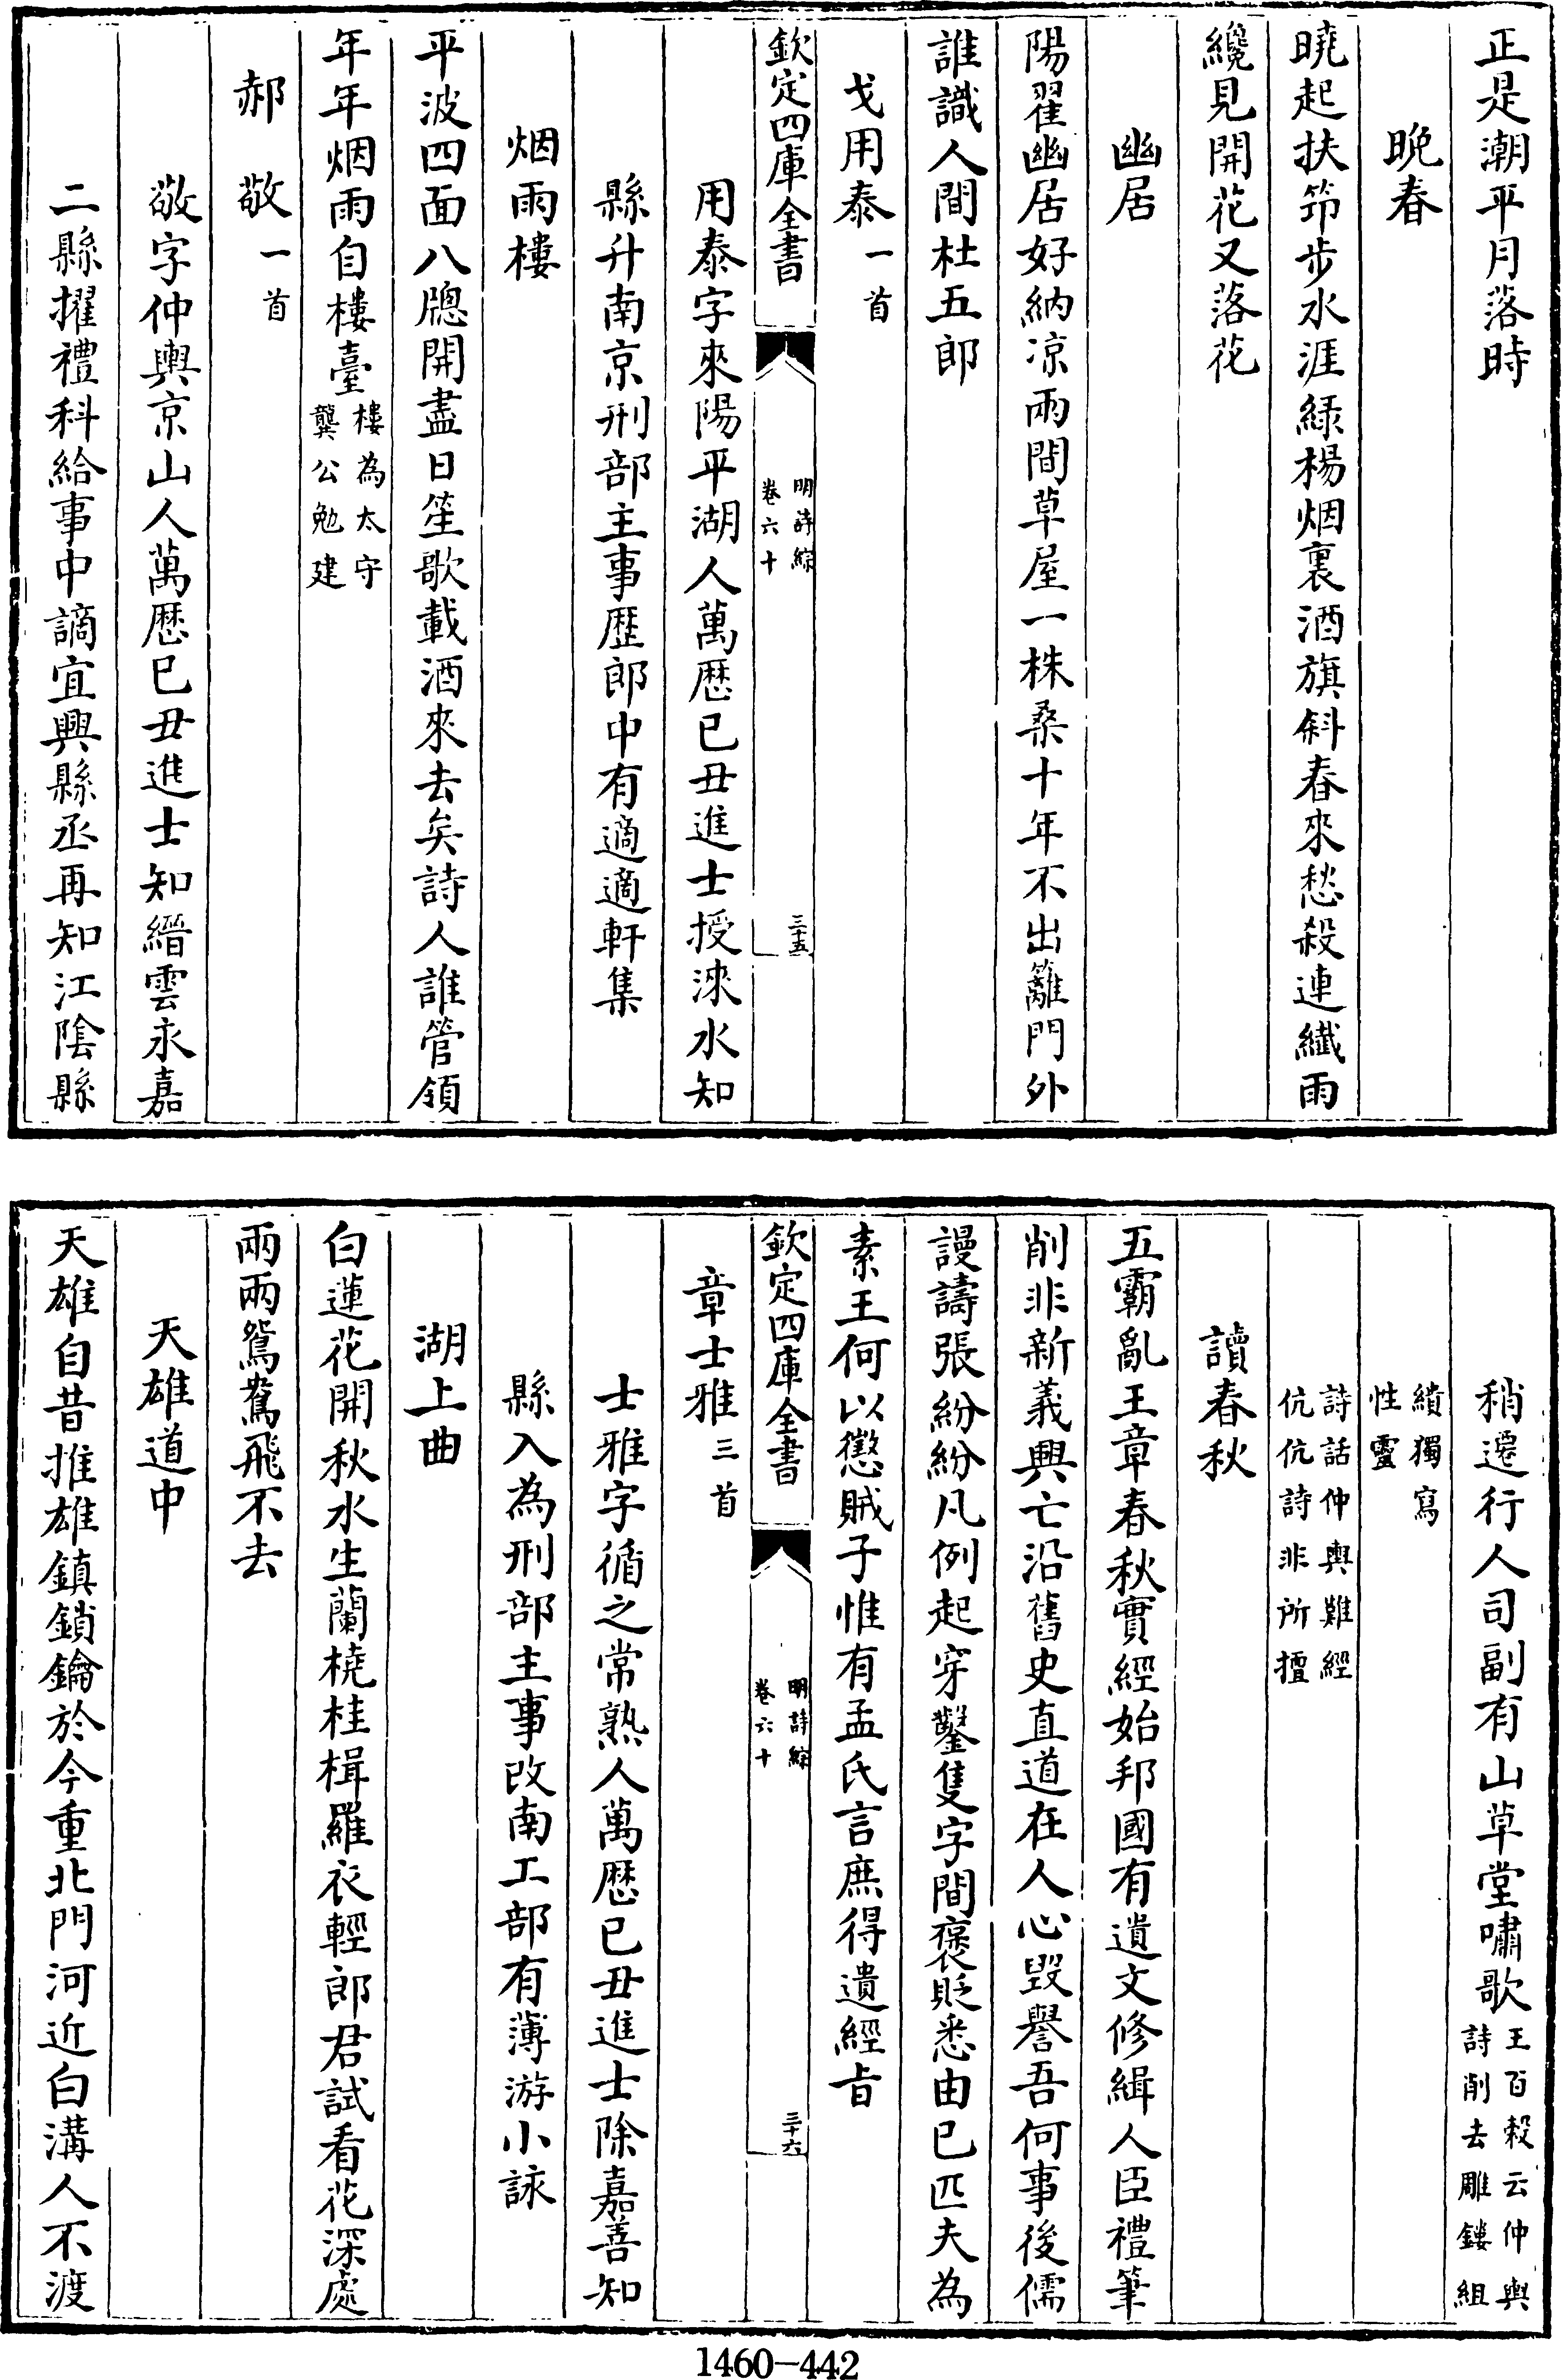 正是潮平月落時
晩春
曉起扶笻步水涯緑楊烟裏酒旗斜春來愁殺連纎雨
纔見開花又落花
幽居
陽翟幽居好納凉兩間草屋一株桑十年不出籬門外
誰識人間杜五郎
戈用泰一首
欽定四庫全書
明詩綜
卷六十
三十五
用泰字來陽平湖人萬歴己丑進士授淶水知
縣升南京刑部主事歴郎中有適適軒集
烟雨樓
平波四面八牕開盡日笙歌載酒來去矣詩人誰管領
年年烟雨自樓臺樓為太守
龔公勉建
郝敬一首
敬字仲輿京山人萬歴己丑進士知縉雲永嘉
二縣擢禮科給事中謫宜興縣丞再知江陰縣
稍遷行人司副有山草堂嘯歌王百穀云仲輿
詩削去雕鏤組
繢獨寫
性靈
詩話仲輿難經
伉伉詩非所擅
讀春秋
五霸亂王章春秋實經始邦國有遺文修緝人臣禮筆
削非新義興亡沿舊史直道在人心毀譽吾何事後儒
謾譸張紛紛凡例起穿鑿隻字間褒貶悉由已匹夫為
素王何以懲賊子惟有孟氏言庶得遺經旨
欽定四庫全書
明詩綜
卷六十
三十六
章士雅三首
士雅字循之常熟人萬歴己丑進士除嘉善知
縣入為刑部主事改南工部有薄游小詠
湖上曲
白蓮花開秋水生蘭橈桂楫羅衣輕郎君試看花深處
兩兩鴛鴦飛不去
天雄道中
天雄自昔推雄鎮鎖鑰於今重北門河近白溝人不渡
1460-442